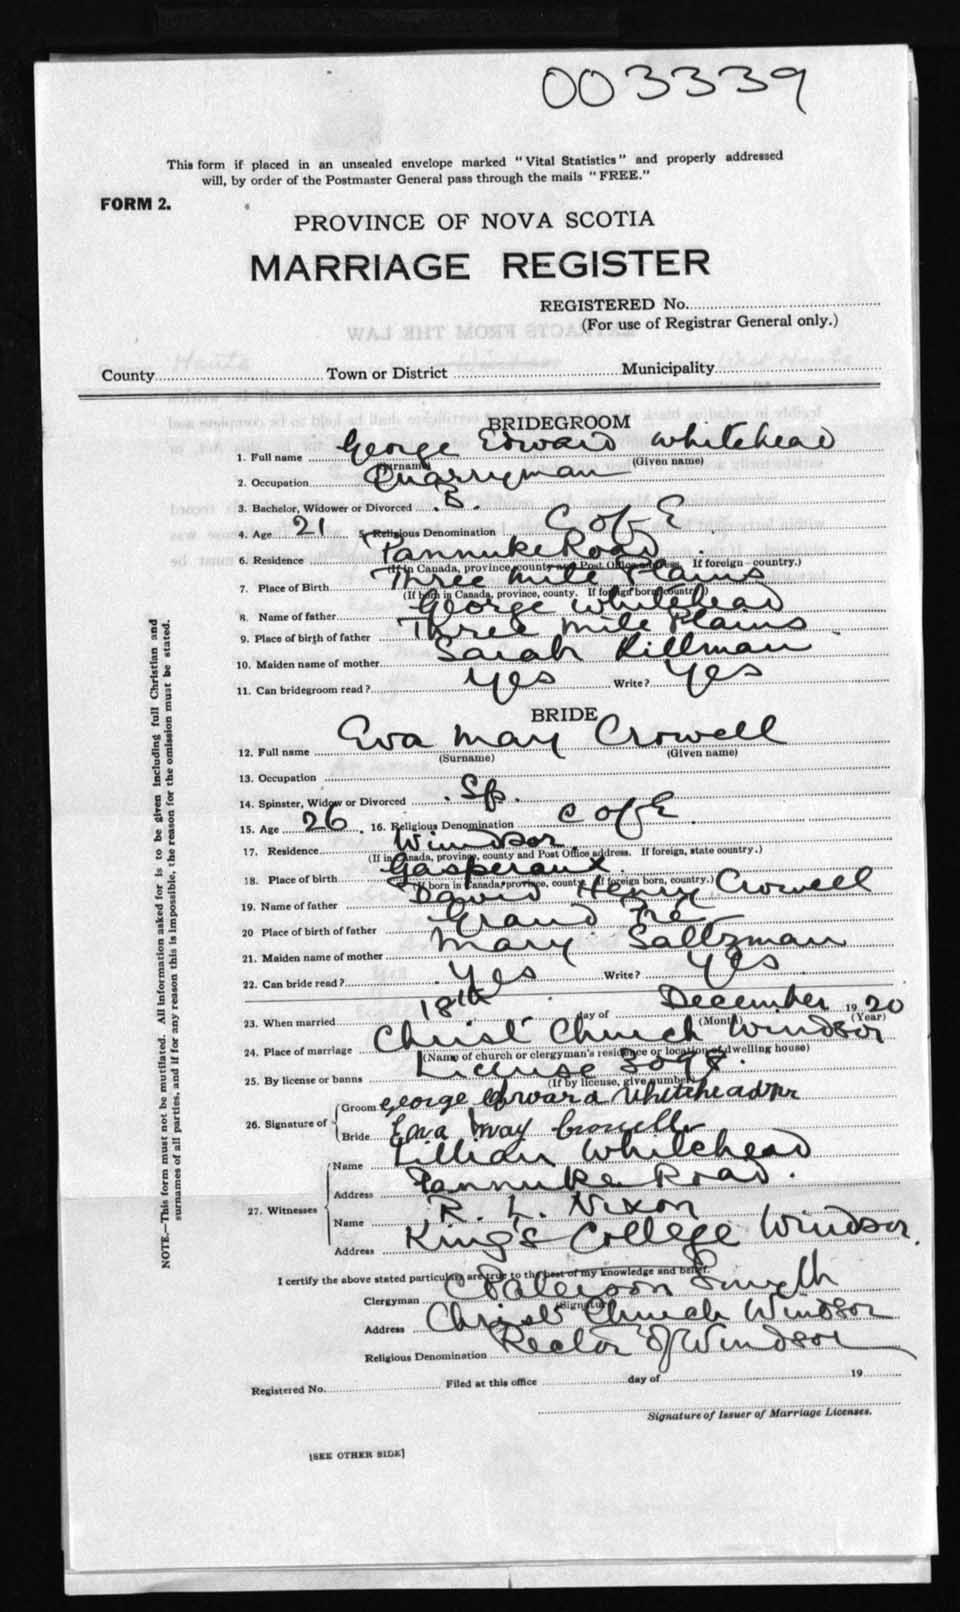 003339
This form if placed in an unsealed envelope marked "Vital Statistics" and properly addressed
will, by order of the Postmaster General pass through the mails "FREE."
FORM 2.
PROVINCE OF NOVA SCOTIA
MARRIAGE REGISTER
REGISTERED No.
(For use of Registrar General only.)
County Hants Town or District Windsor Municipality West Hants
BRIDEGROOM
1. Full name George Edward Whitehead
(Surname) (Given name)
2. Occupation Quarryman
3. Bachelor, Widower or Divorced B.
4. Age 21 5. Religious Denomination C of E
6. Residence Pannuke Road
(If in Canada, province, county and Post Office address. If foreign country.)
7. Place of Birth Three Mile Plains
(If born in Canada, province, county. If foreign born, country)
8. Name of father George Whitehead
9. Place of birth of father Three Mile Plains
10. Maiden name of mother Sarah Killman
11. Can bridegroom read? Yes Write? Yes
BRIDE
12. Full name Eva May Crowell
(Surname) (Given name)
13. Occupation
14. Spinster, Widow or Divorced Sp.
15. Age 26. 16. Religious Denomination C of E.
17. Residence Windsor.
(If in Canada, province, county and Post Office address. If foreign, state country.)
18. Place of birth Gasperaux
(If born in Canada, province, county. If foreign born, country.)
19. Name of father David Henry Crowell
20 Place of birth of father Grand Pré
21. Maiden name of mother Mary Saltzman
22. Can bride read? Yes Write? Yes
23. When married 18th day of December 1920
(Month) (Year)
24. Place of marriage Christ Church Windsor
(Name of church or clergyman's residence or location of dwelling house)
25. By license or banns License 3098.
(If by license, give number)
26. Signature of Groom George Edward Whitehead
Bride Eva May Crowell
27. Witnesses Name Lillian Whitehead
Address Pannuke Road.
Name R. L. Nixon
Address King's College Windsor.
I certify the above stated particulars are true to the best of my knowledge and belief.
Clergyman Paterson Smyth
(Signature)
Address Christ Church Windsor
Religious Denomination Rector of Windsor
Registered No. Filed at this office day of 19
Signature of Issuer of Marriage Licenses.
[SEE OTHER SIDE]
NOTE.—This form must not be mutilated. All information asked for is to be given including full Christian and
surnames of all parties, and if for any reason this is impossible, the reason for the omission must be stated.